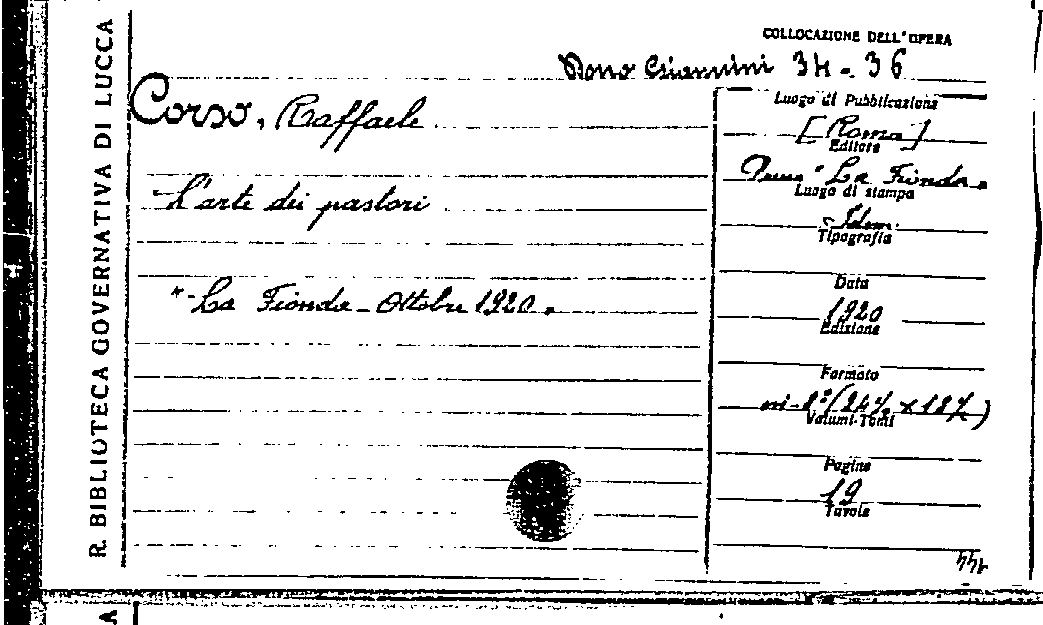 R. BIBLIOTECA GOVERNATIVA DI LUCCA
COLLOCAZIONE DELL'OPERA
Dono Giannini 34-36
Corso, Raffaele
L'arte dei pastori
"La Fionda - Ottobre 1920"
Luogo di Pubblicazione
[Roma]
Editore
"La Fionda"
Luogo di stampa
Idem.
Tipografia
Data
1920
Edizione
Formato
in-8º (24½ x 18½)
Volumi-Tomi
Pagine
19
Tavole
A